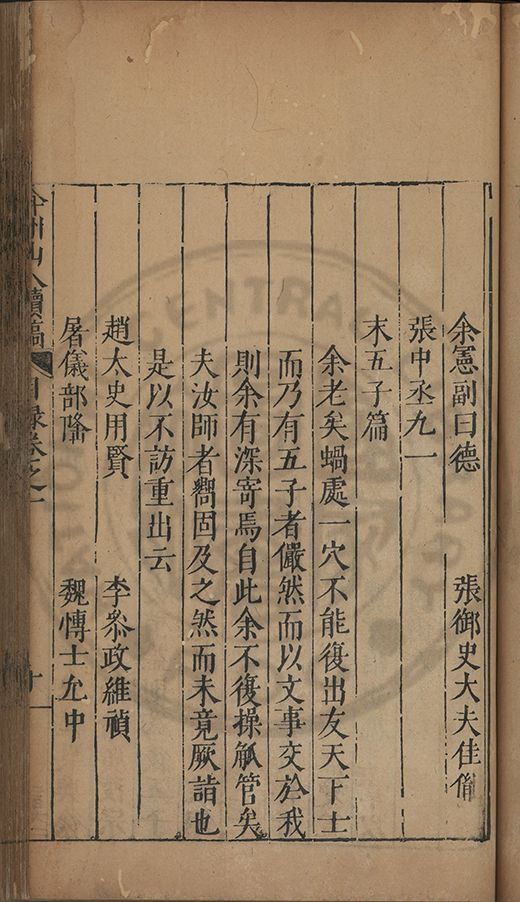 余憲副曰德 張御史大夫佳胤
張中丞九一
末五子篇
余老矣蝸處一穴不能復出友天下士
而乃有五子者儼然而以文事交於我
則余有深寄焉自此余不復操觚管矣
夫汝師者嚮固及之然而未竟厥詣也
是以不訪重出云
趙太史用賢 李叅政維禎
屠儀部隆 魏愽士允中
弇州山人續稿 目録卷之一 十一